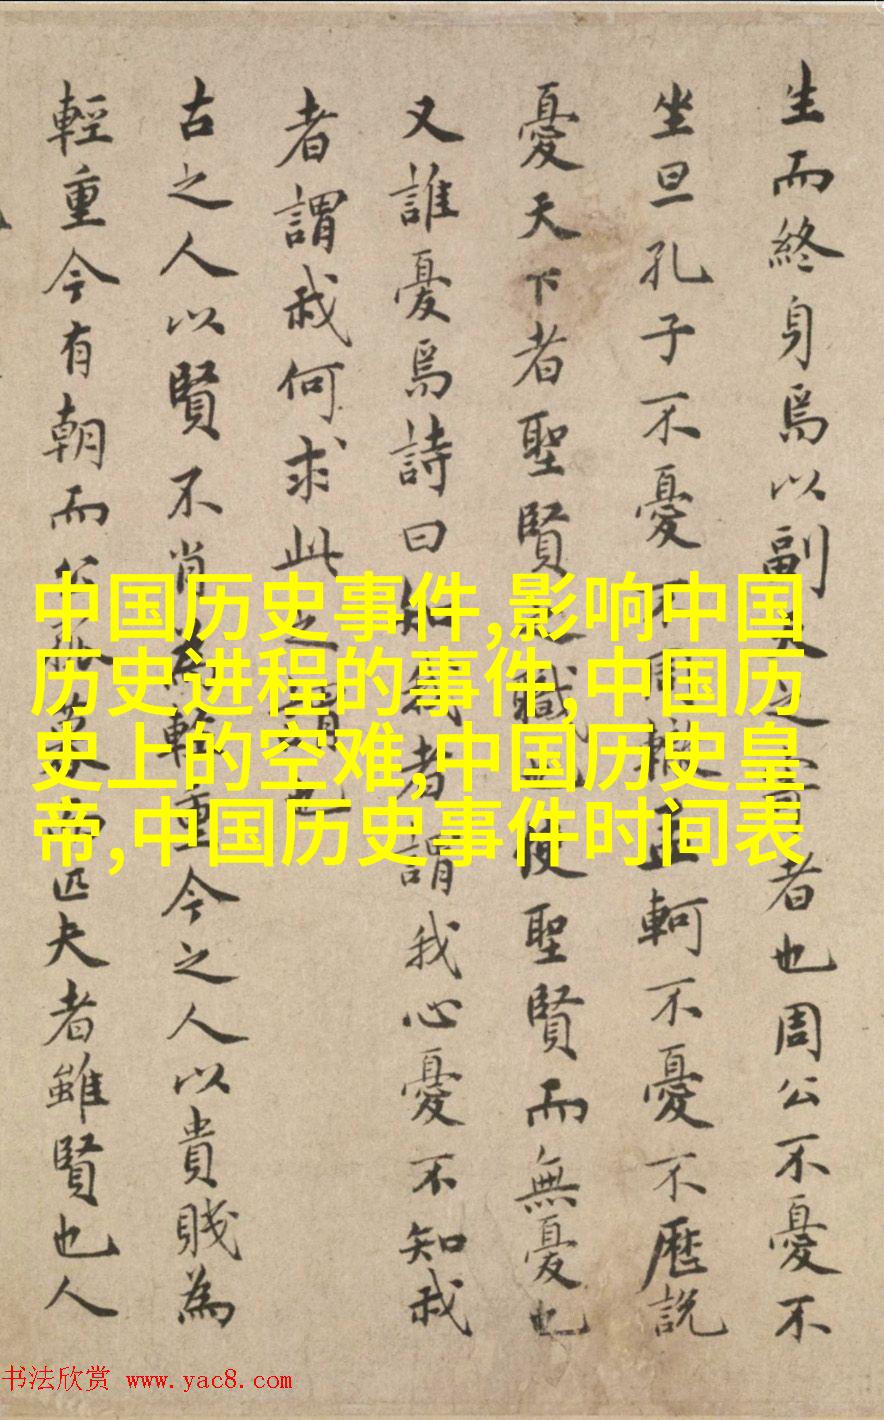 生而終身焉以副天之寄者也周公不憂不
坐旦孔子不憂不周轍孟軻不憂不歷說
憂天下者聖賢之職也使聖賢而無憂也
又誰憂焉詩曰知我者謂我心憂不知我
者謂我何求此之謂也
古之人以賢不肖為輕重今之人以貴賤為
輕重今有朝而公孤暮而匹夫者雖賢也人
中国历史事件,影响中国
历史进程的事件,中国历
史上的空难,中国历史皇
帝,中国历史事件时间表
书法欣赏 www.yac8.com